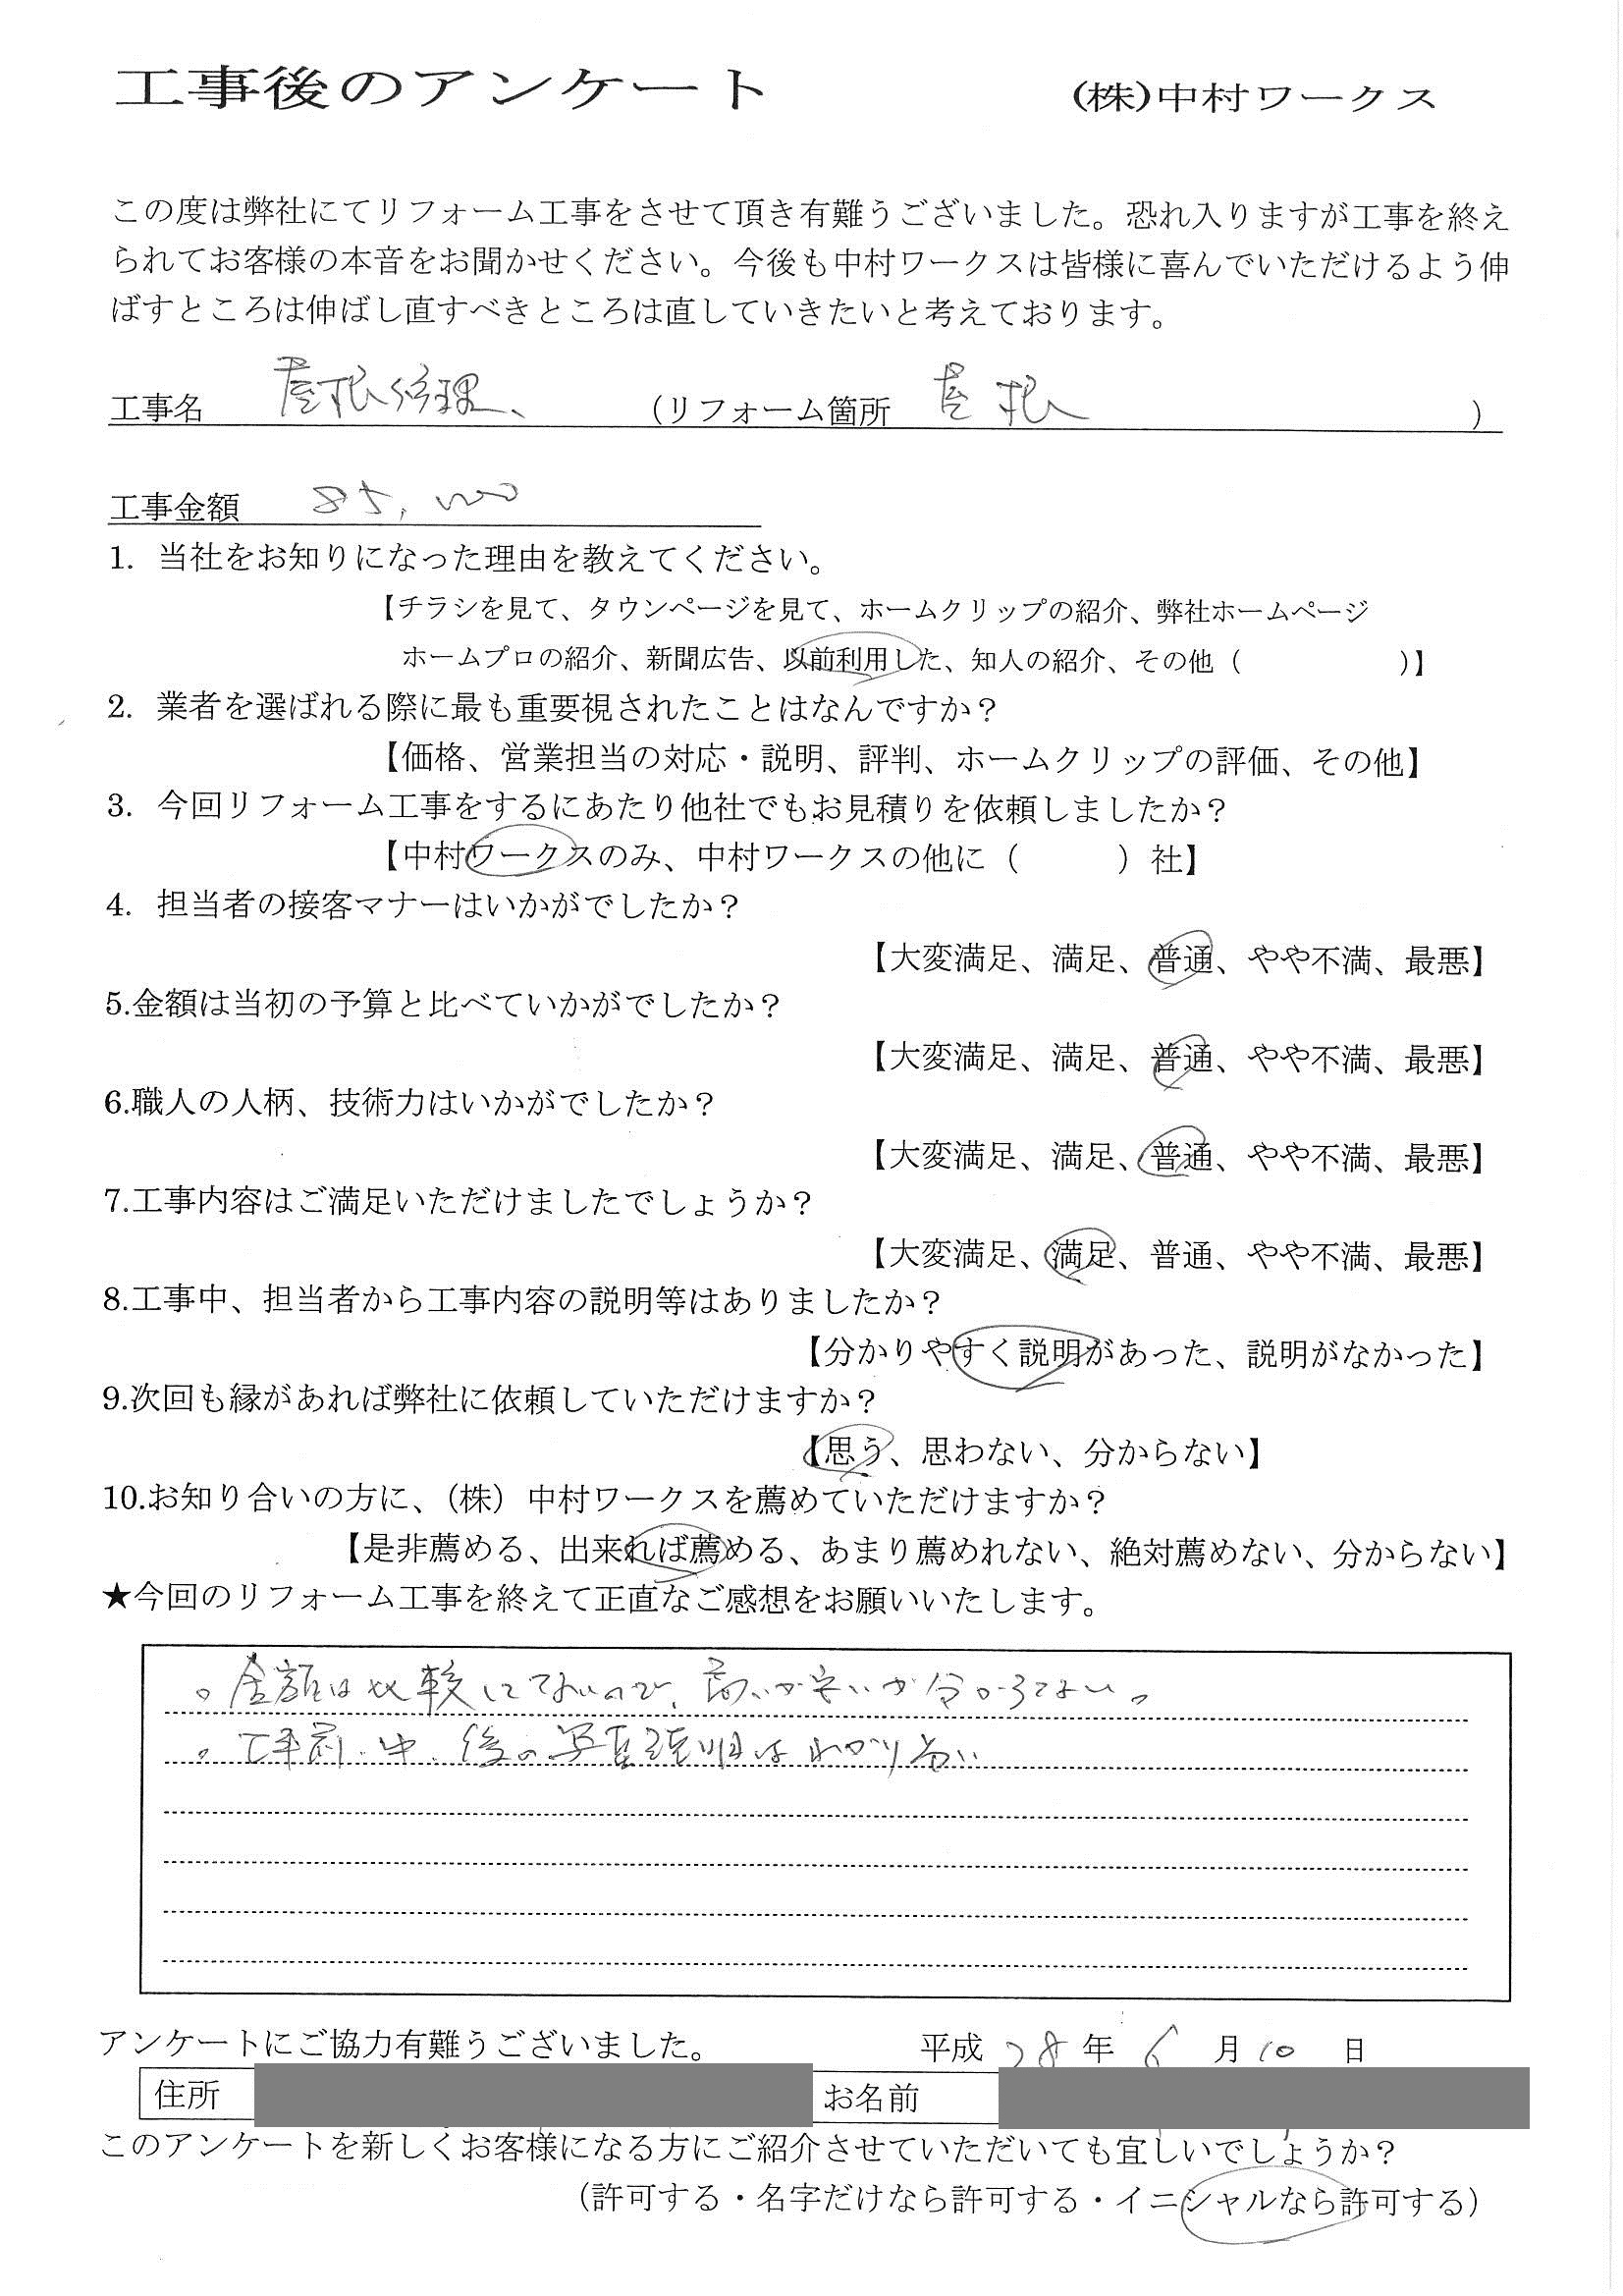 工事後のアンケート (株)中村ワークス
この度は弊社にてリフォーム工事をさせて頂き有難うございました。恐れ入りますが工事を終え
られてお客様の本音をお聞かせください。今後も中村ワークスは皆様に喜んでいただけるよう伸
ばすところは伸ばし直すべきところは直していきたいと考えております。
工事名 屋根修理、 (リフォーム箇所 屋根 )
工事金額 85,000
1. 当社をお知りになった理由を教えてください。
【チラシを見て、タウンページを見て、ホームクリップの紹介、弊社ホームページ
ホームプロの紹介、新聞広告、以前利用した、知人の紹介、その他( )】
2. 業者を選ばれる際に最も重要視されたことはなんですか?
【価格、営業担当の対応・説明、評判、ホームクリップの評価、その他】
3. 今回リフォーム工事をするにあたり他社でもお見積りを依頼しましたか?
【中村ワークスのみ、中村ワークスの他に( )社】
4. 担当者の接客マナーはいかがでしたか?
【大変満足、満足、普通、やや不満、最悪】
5.金額は当初の予算と比べていかがでしたか?
【大変満足、満足、普通、やや不満、最悪】
6.職人の人柄、技術力はいかがでしたか?
【大変満足、満足、普通、やや不満、最悪】
7.工事内容はご満足いただけましたでしょうか?
【大変満足、満足、普通、やや不満、最悪】
8.工事中、担当者から工事内容の説明等はありましたか?
【分かりやすく説明があった、説明がなかった】
9.次回も縁があれば弊社に依頼していただけますか?
【思う、思わない、分からない】
10.お知り合いの方に、(株)中村ワークスを薦めていただけますか?
【是非薦める、出来れば薦める、あまり薦めれない、絶対薦めない、分からない】
★今回のリフォーム工事を終えて正直なご感想をお願いいたします。
。金額は比較してないので、高いか安いか分からない。
。工事前、中、後の写真説明はわかり易い
アンケートにご協力有難うございました。 平成 28 年 6 月 10 日
住所 お名前
このアンケートを新しくお客様になる方にご紹介させていただいても宜しいでしょうか?
(許可する・名字だけなら許可する・イニシャルなら許可する)